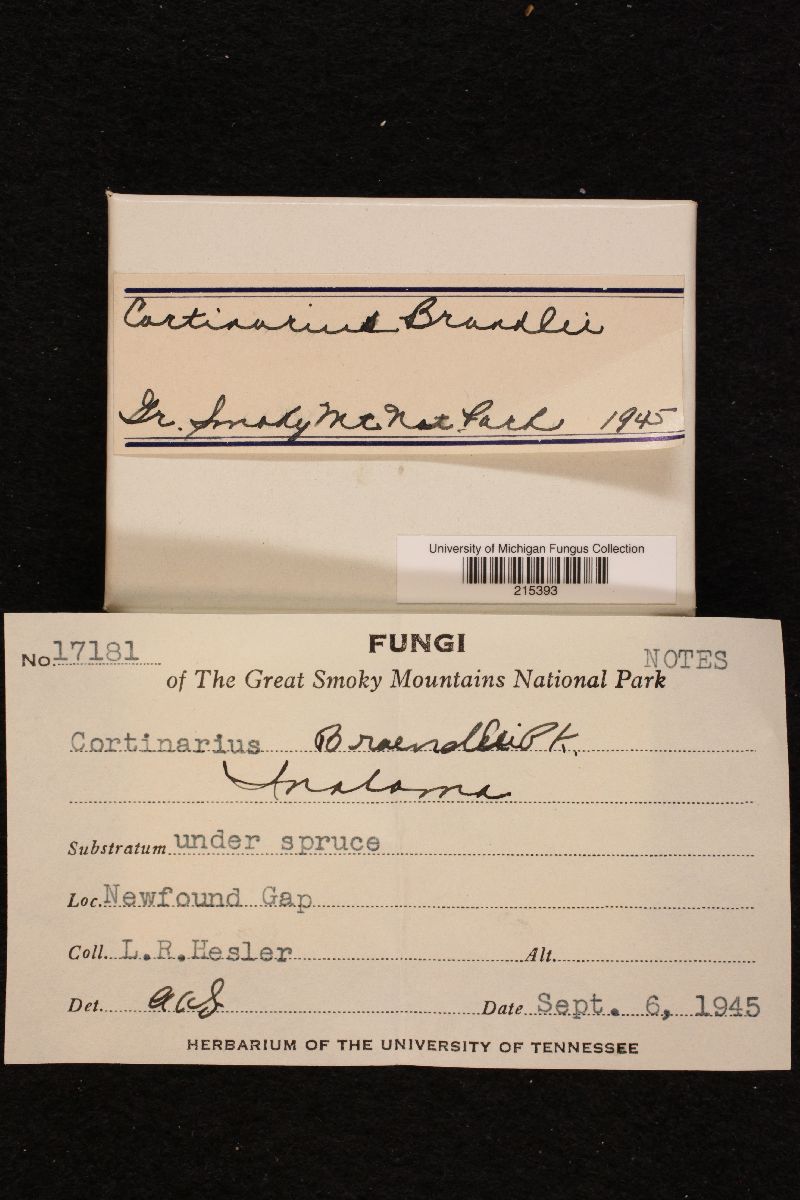 Cortinarius Brandlii
Gr. Smoky Mt. Nat. Park 1945
University of Michigan Fungus Collection
215393
No. 17181
FUNGI
NOTES
of The Great Smoky Mountains National Park
Cortinarius Braendlii Pk.
Inoloma
Substratum under spruce
Loc. Newfound Gap
Coll. L.R.Hesler Alt.
Det. AHS Date Sept. 6, 1945
HERBARIUM OF THE UNIVERSITY OF TENNESSEE